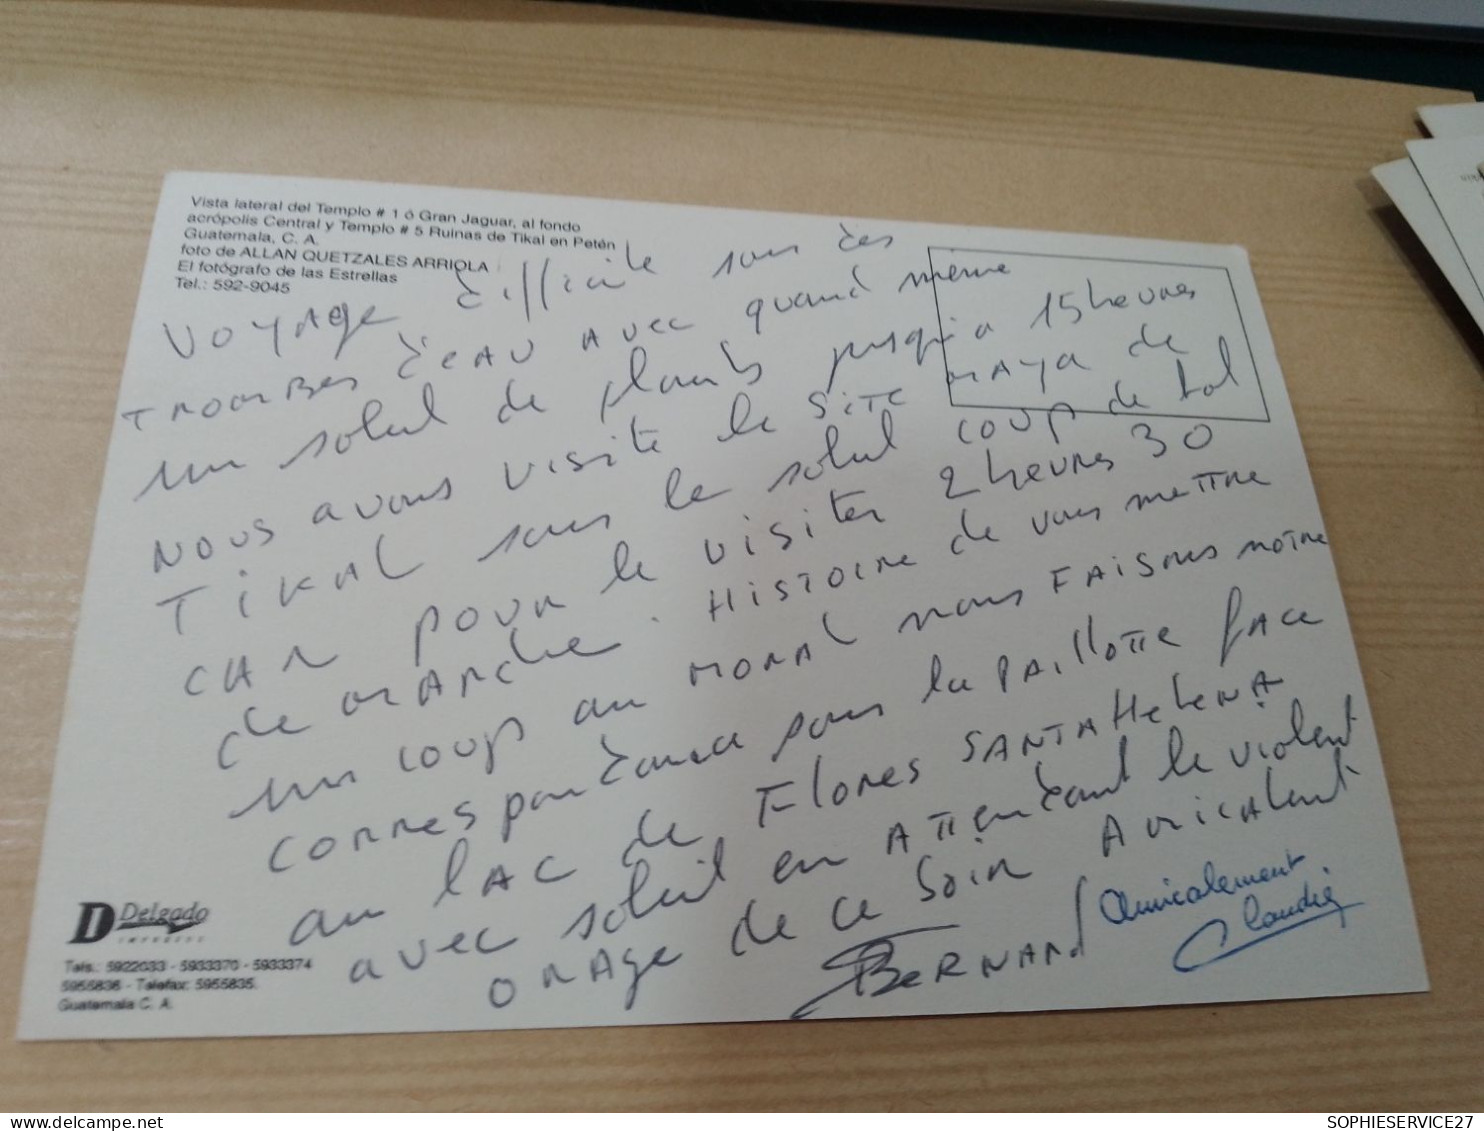 Vista lateral del Templo # 1 ó Gran Jaguar, al fondo
acrópolis Central y Templo # 5 Ruinas de Tikal en Petén
Guatemala, C. A.
foto de ALLAN QUETZALES ARRIOLA
El fotógrafo de las Estrellas
Tel.: 592-9045
VOYAGE difficile sous des
TROMBES d'EAU AVEC quand même
un soleil de plomb jusqu'à 15 heures
NOUS avons VISITÉ le SITE MAYA de
TIKAL sous le soleil COUP de bol
CAR pour le VISITER 2 heures 30
de MARche. HISTOIRE de vous METTRE
un coup au MORAL nous FAISONS NOTRE
CORRESpondance sous la PAILLOTTE FACE
au LAC de FlORES SANTA HeleNA
avec soleil en ATTENdant le violent
ORAGE de ce Soir AMICAlent
BERNARd
Amicalement
Claudie
D Delgado
IMPRESOS
Tels.: 5922033 - 5933370 - 5933374
5955836 - Telefax: 5955835.
Guatemala C. A.
SOPHIESERVICE27